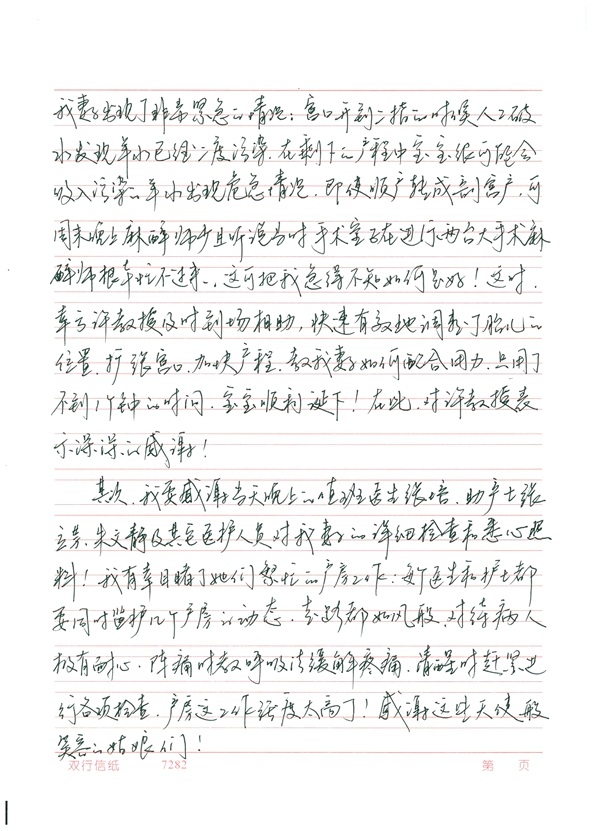 我妻子出现了非常紧急的情况：宫口开到二指的时候人工破
水发现羊水已经二度污染，在剩下的产程中宝宝很可能会
吸入污染的羊水出现危急情况，即使顺产转成剖宫产，可
周末晚上麻醉师少且听说当时手术室正在进行两台大手术麻
醉师根本忙不过来，这可把我急得不知如何是好！这时，
幸亏许教授及时到场相助，快速有效地调整了胎儿的
位置，扩张宫口，加快产程，教我妻子如何配合用力，只用了
不到1个钟的时间，宝宝顺利诞下！在此，对许教授表
示深深的感谢！
其次，我要感谢当天晚上的值班医生张培、助产士张
立芸、朱文静及其它医护人员对我妻子的详细检查和悉心照
料！我有幸目睹了她们繁忙的产房工作：每个医生和护士都
要同时监护几个产房的动态，走路都如风般，对待病人
极有耐心，阵痛时教呼吸法缓解疼痛，清醒时赶紧进
行各项检查，产房这工作强度太高了！感谢这些天使般
笑容的姑娘们！
双行信纸 7282 第 页